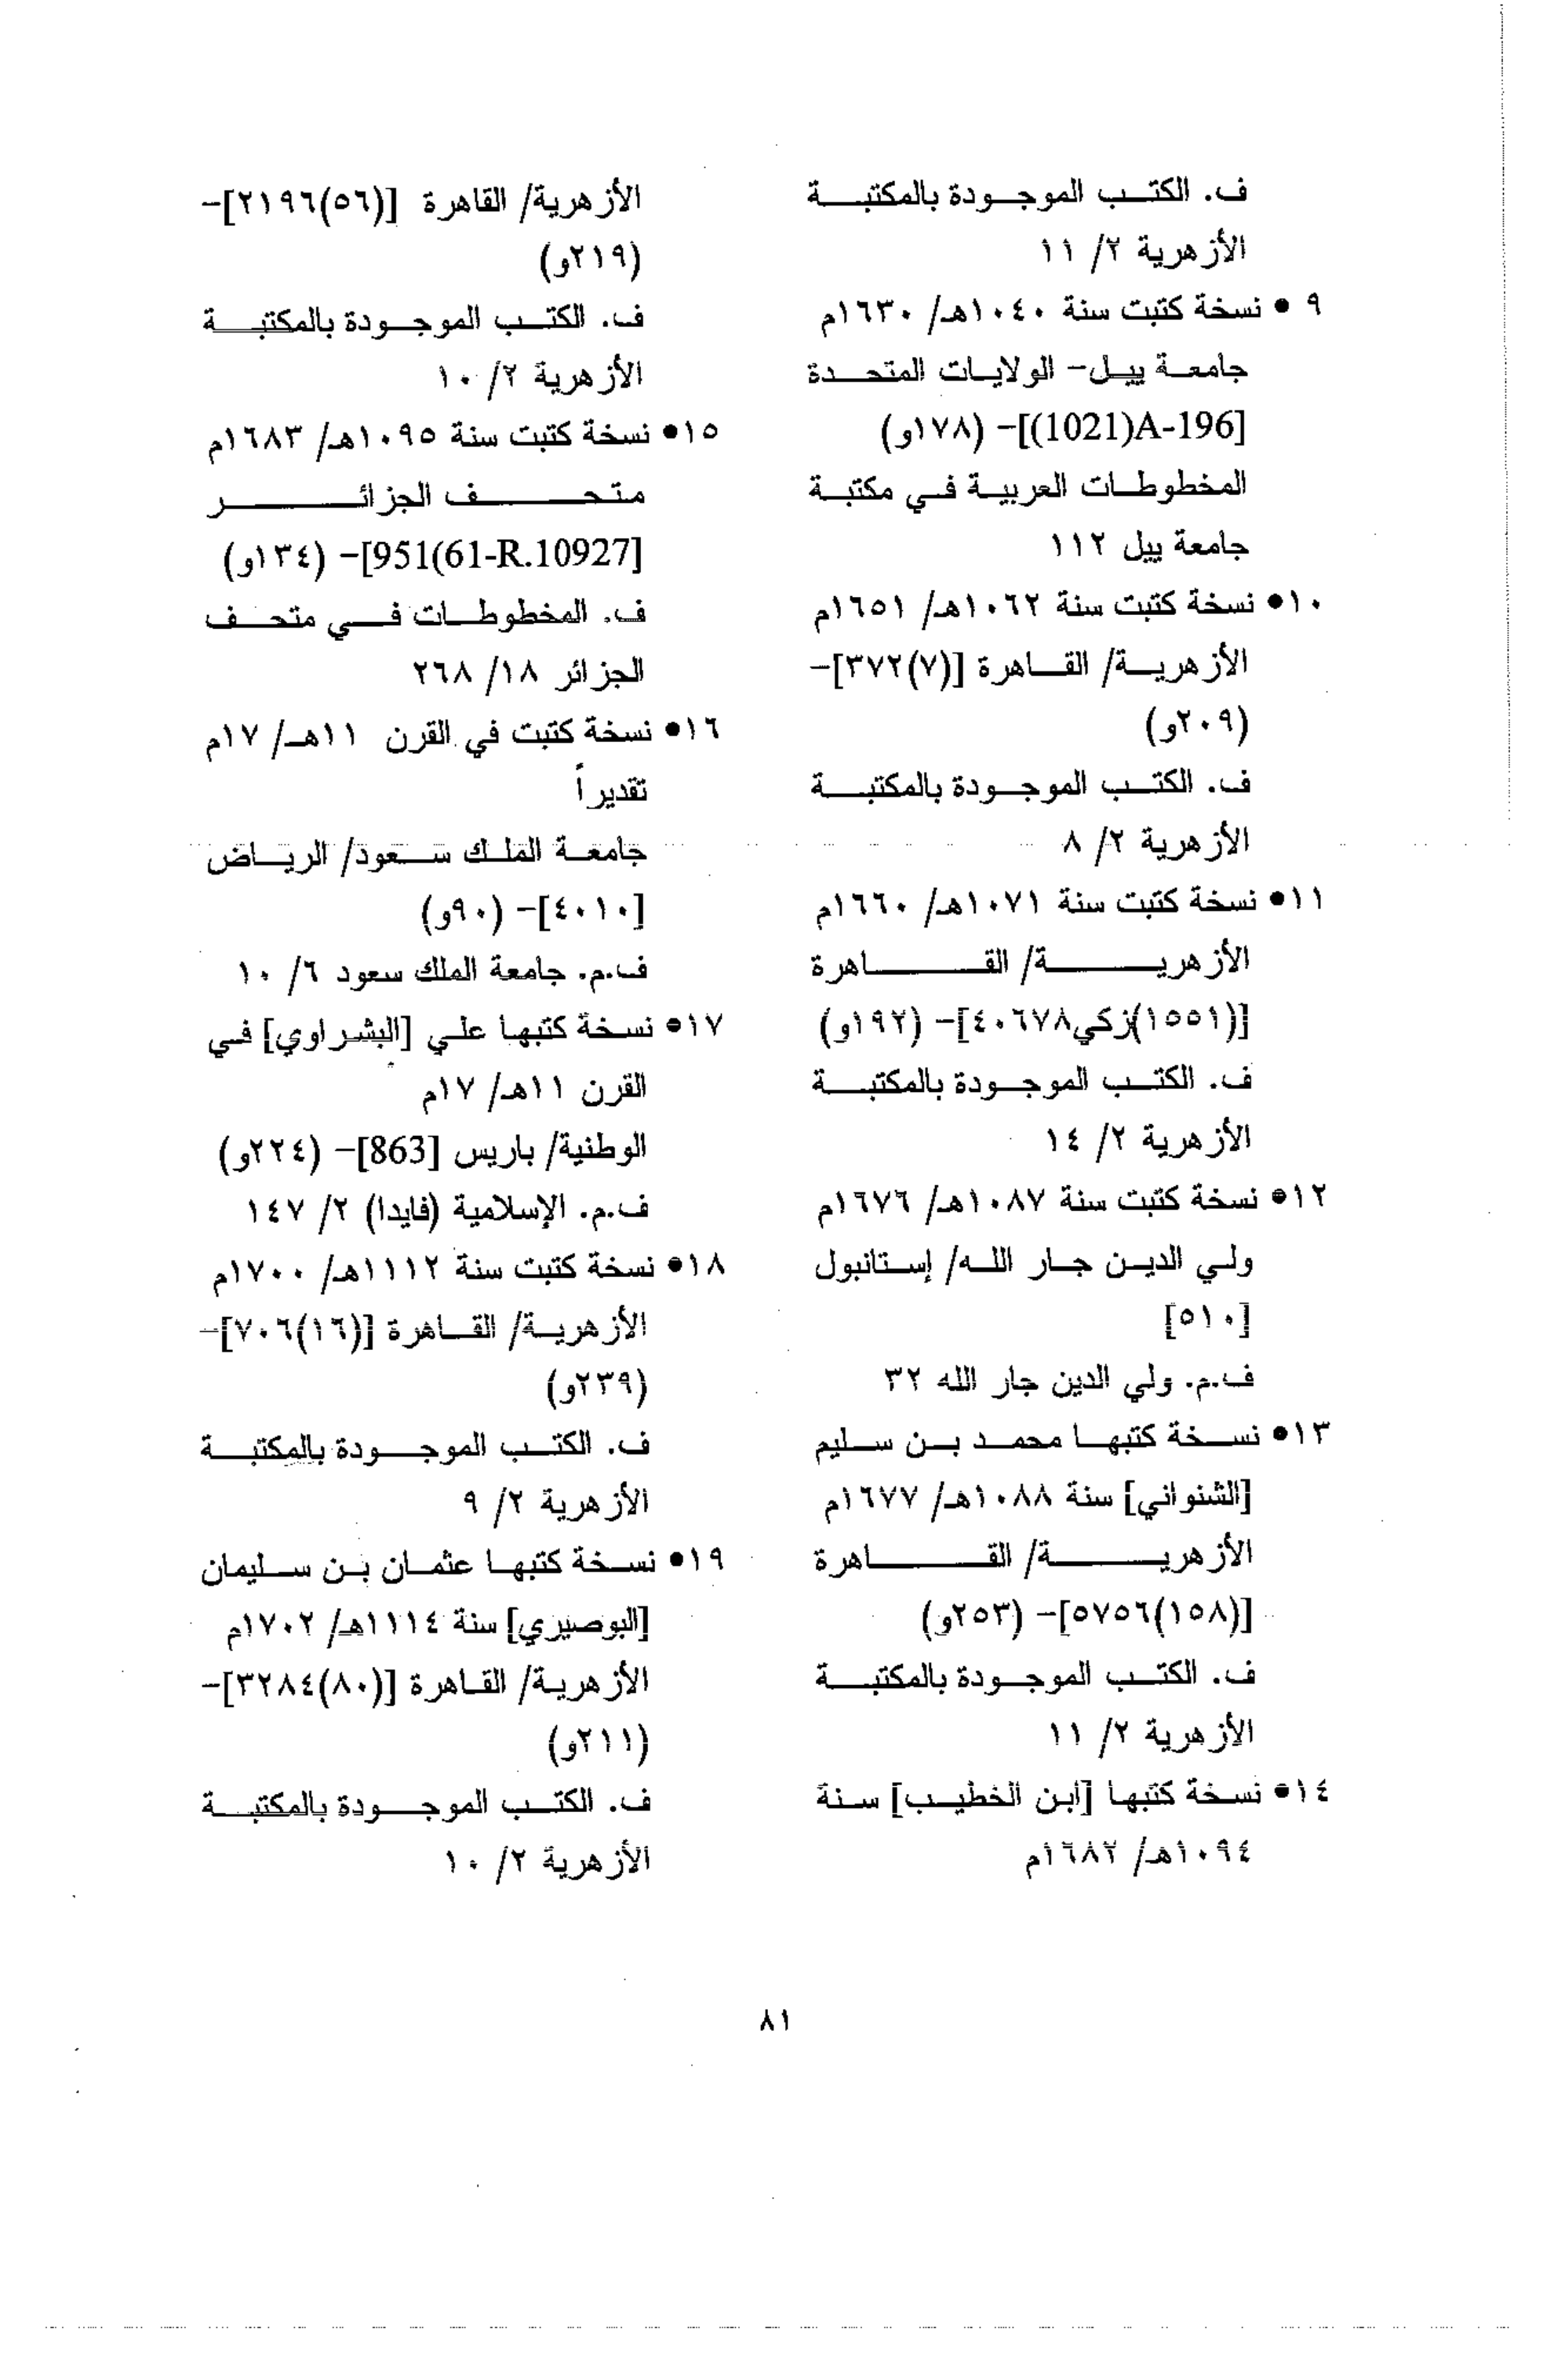 ف. الكتب الموجودة بالمكتبة
الأزهرية ٢/ ١١
٩ • نسخة كتبت سنة ١٠٤٠هـ/ ١٦٣٠م
جامعة ييل- الولايات المتحدة
[(1021)A-196]- (١٧٨و)
المخطوطات العربية في مكتبة
جامعة ييل ١١٢
١٠• نسخة كتبت سنة ١٠٦٢هـ/ ١٦٥١م
الأزهرية/ القاهرة [(٧)٣٧٢]-
(٢٠٩و)
ف. الكتب الموجودة بالمكتبة
الأزهرية ٢/ ٨
١١• نسخة كتبت سنة ١٠٧١هـ/ ١٦٦٠م
الأزهرية/ القاهرة
[(١٥٥١)زكي٤٠٦٧٨]- (١٩٢و)
ف. الكتب الموجودة بالمكتبة
الأزهرية ٢/ ١٤
١٢• نسخة كتبت سنة ١٠٨٧هـ/ ١٦٧٦م
ولي الدين جار الله/ إستانبول
[٥١٠]
ف.م. ولي الدين جار الله ٣٢
١٣• نسخة كتبها محمد بن سليم
[الشنواني] سنة ١٠٨٨هـ/ ١٦٧٧م
الأزهرية/ القاهرة
[(١٥٨)٥٧٥٦]- (٢٥٣و)
ف. الكتب الموجودة بالمكتبة
الأزهرية ٢/ ١١
١٤• نسخة كتبها [ابن الخطيب] سنة
١٠٩٤هـ/ ١٦٨٢م
الأزهرية/ القاهرة [(٥٦)٢١٩٦]-
(٢١٩و)
ف. الكتب الموجودة بالمكتبة
الأزهرية ٢/ ١٠
١٥• نسخة كتبت سنة ١٠٩٥هـ/ ١٦٨٣م
متحف الجزائر
[951(61-R.10927]- (١٣٤و)
ف. المخطوطات في متحف
الجزائر ١٨/ ٢٦٨
١٦• نسخة كتبت في القرن ١١هـ/ ١٧م
تقديراً
جامعة الملك سعود/ الرياض
[٤٠١٠]- (٩٠و)
ف.م. جامعة الملك سعود ٦/ ١٠
١٧• نسخة كتبها علي [البشراوي] في
القرن ١١هـ/ ١٧م
الوطنية/ باريس [863]- (٢٢٤و)
ف.م. الإسلامية (فايدا) ٢/ ١٤٧
١٨• نسخة كتبت سنة ١١١٢هـ/ ١٧٠٠م
الأزهرية/ القاهرة [(١٦)٧٠٦]-
(٢٣٩و)
ف. الكتب الموجودة بالمكتبة
الأزهرية ٢/ ٩
١٩• نسخة كتبها عثمان بن سليمان
[البوصيري] سنة ١١١٤هـ/ ١٧٠٢م
الأزهرية/ القاهرة [(٨٠)٣٢٨٤]-
(٢١١و)
ف. الكتب الموجودة بالمكتبة
الأزهرية ٢/ ١٠
٨١